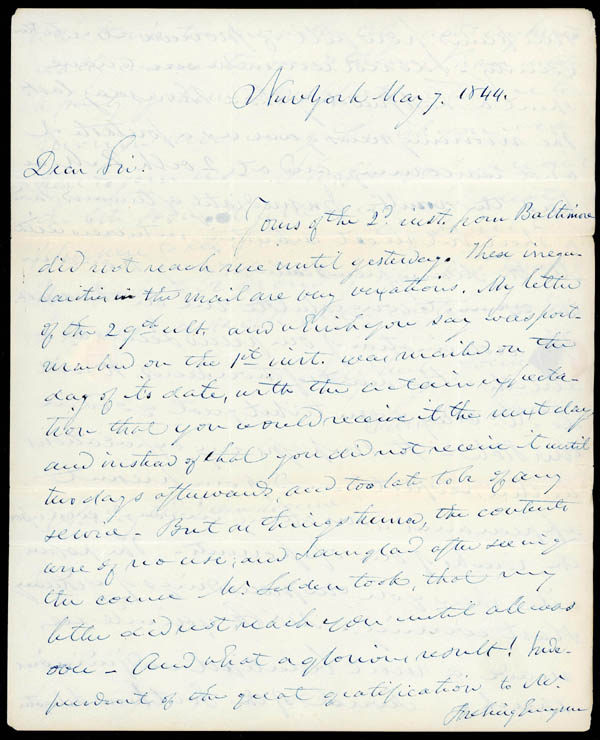 New York May 7. 1844.
Dear Sir.
Yours of the 2d. inst. from Baltimore
did not reach me until yesterday. These irregu-
larities in the mail are very vexatious. My letter
of the 29th ult. and which you say was post-
marked on the 1st inst. was mailed on the
day of its date, with the certain expecta-
tion that you would receive it the next day
and instead of that you did not receive it until
two days afterwards, and too late to be of any
service. But as things turned, the contents
were of no use; and I am glad after seeing
the course Mr. Selden took, that my
letter did not reach you until all was
over - And what a glorious result! Inde-
pendent of the great gratification to Mr.